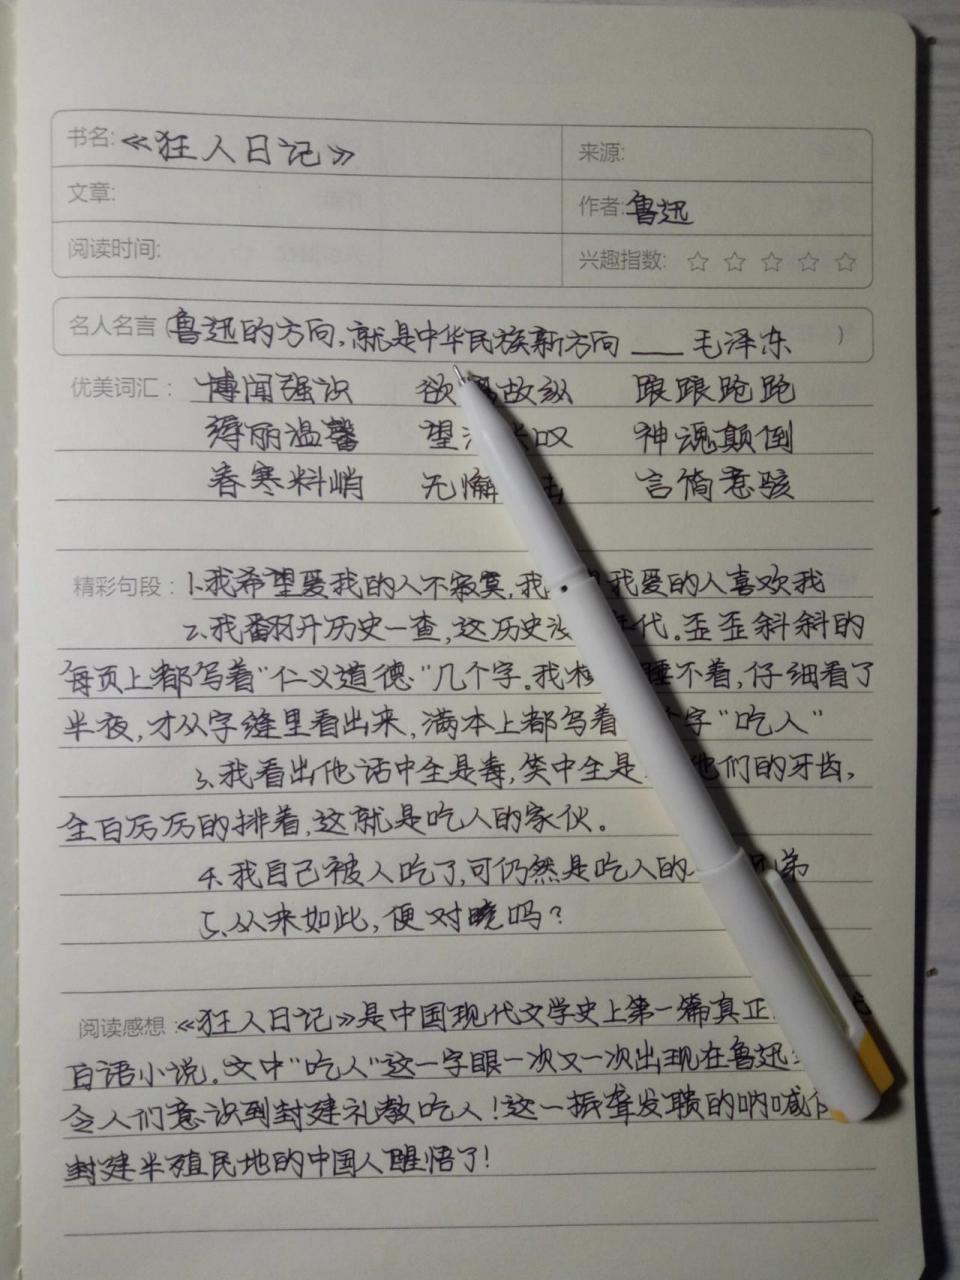 书名:《狂人日记》 来源:
文章: 作者:鲁迅
阅读时间: 兴趣指数:☆☆☆☆☆
名人名言(鲁迅的方向,就是中华民族新方向——毛泽东)
优美词汇: 博闻强识 欲 故纵 跟跟跄跄
温馨 望 叹 神魂颠倒
春寒料峭 无懈 击 言简意骇
精彩句段:1.我希望爱我的人不寂寞,我 我爱的人喜欢我
2.我翻开历史一查,这历史没 年代。歪歪斜斜的
每页上都写着“仁义道德”几个字。我 睡不着,仔细看了
半夜,才从字缝里看出来,满本上都写着 个字“吃人”
3.我看出他话中全是毒,笑中全是 他们的牙齿,
全白厉厉的排着,这就是吃人的家伙。
4.我自己被人吃了,可仍然是吃人的 兄弟
5.从来如此,便对 吗?
阅读感想:《狂人日记》是中国现代文学史上第一篇真正
白话小说。文中“吃人”这一字眼一次又一次出现在鲁迅
令人们意识到封建礼教吃人!这一振聋发聩的呐喊
封建半殖民地的中国人醒悟了!